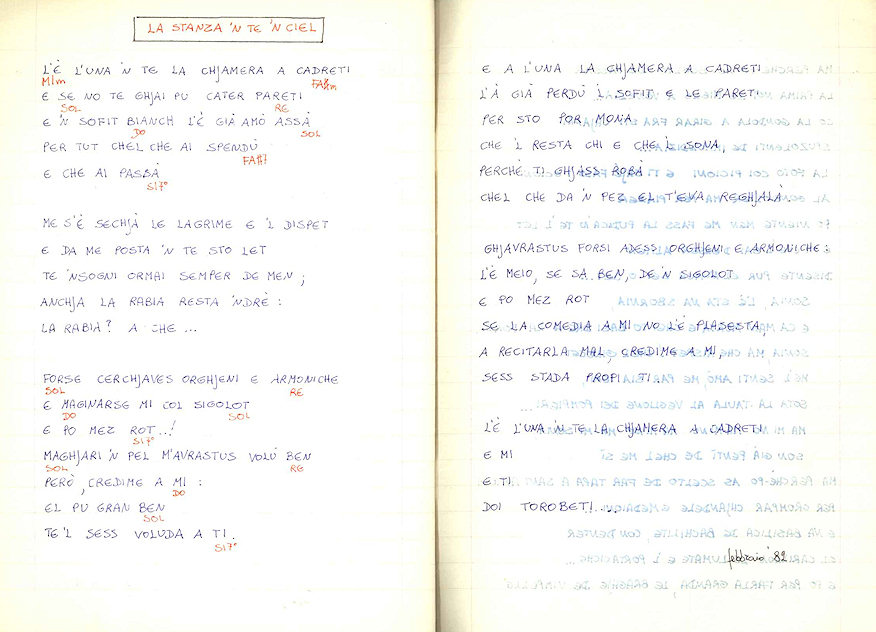 LA STANZA 'N TE 'N CIEL
L'È L'UNA 'N TE LA CHJAMERA A CADRETI
MIm FA#m
E SE NO TE GHJAI PU CATER PARETI
SOL RE
E 'N SOFIT BIANCH L'È GIÀ AMÒ ASSÀ
DO SOL
PER TUT CHEL CHE AI SPENDÙ
FA#7
E CHE AI PASSÀ
SI7°
ME S'È SECHJÀ LE LAGRIME E 'L DISPET
E DA ME POSTA 'N TE STO LET
TE 'NSOGNI ORMAI SEMPER DE MEN ;
ANCHJA LA RABIA RESTA 'NDRÈ :
LA RABIA? A CHE ...
FORSE CERCHJAVES ORGHJENI E ARMONICHE
SOL RE
E MAGINARSE MI COL SIGOLOT
DO SOL
E PO MEZ ROT...!
SI7°
MAGHJARI 'N PEL M'AVRASTUS VOLÙ BEN
SOL RE
PERÒ, CREDIME A MI :
DO
EL PU GRAN BEN
SOL
TE 'L SESS VOLUDA A TI.
SI7°
E A L'UNA LA CHJAMERA A CADRETI
L'À GIÀ PERDÙ 'L SOFIT E LE PARETI
PER STO POR MONA
CHE 'L RESTA CHI E CHE 'L SONA,
PERCHÈ TI GHJASS ROBÀ
CHEL CHE DA 'N PEZ EL T'EVA REGHJALÀ
GHJAVRASTUS FORSI ADESS ORGHJENI E ARMONICHE :
L'È MEIO, SE SA BEN, DE 'N SIGOLOT
E PO MEZ ROT
SE LA COMEDIA A MI NO L'È PLASESTA,
A RECITARLA MAL, CREDIME A MI,
SESS STADA PROPI TI.
L'È L'UNA 'N TE LA CHJAMERA A CADRETI
E MI
E TI
DOI TOROBETI....
febbraio '82